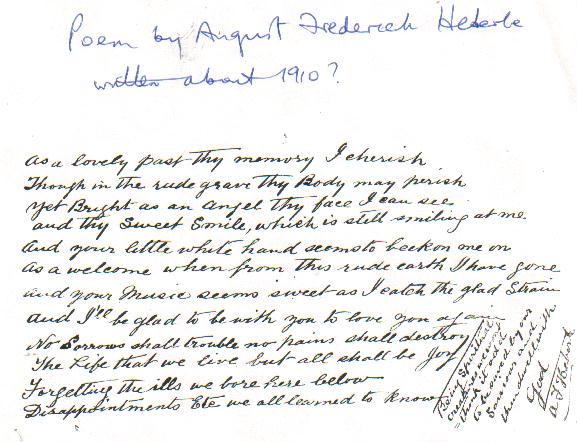 Poem by August Frederich Heberle
written about 1910?
As a lovely past thy memory I cherish
Though in the rude grave thy Body may perish
yet Bright as an Angel thy face I can see
and thy Sweet Smile, which is still smiling at me
And your little white hand seems to beckon me on
As a welcome when from this rude earth I have gone
and your Music seems sweet as I catch the glad Strain
And I'll be glad to be with you to love you again
No Sorrows shall trouble no pains shall destroy
The Life that we live but all shall be Joy
Forgetting the ills we bore here below
Disappointments Etc we all learned to know
Being Spiritual
think it odd
to be moved by our
Sorrows and
God